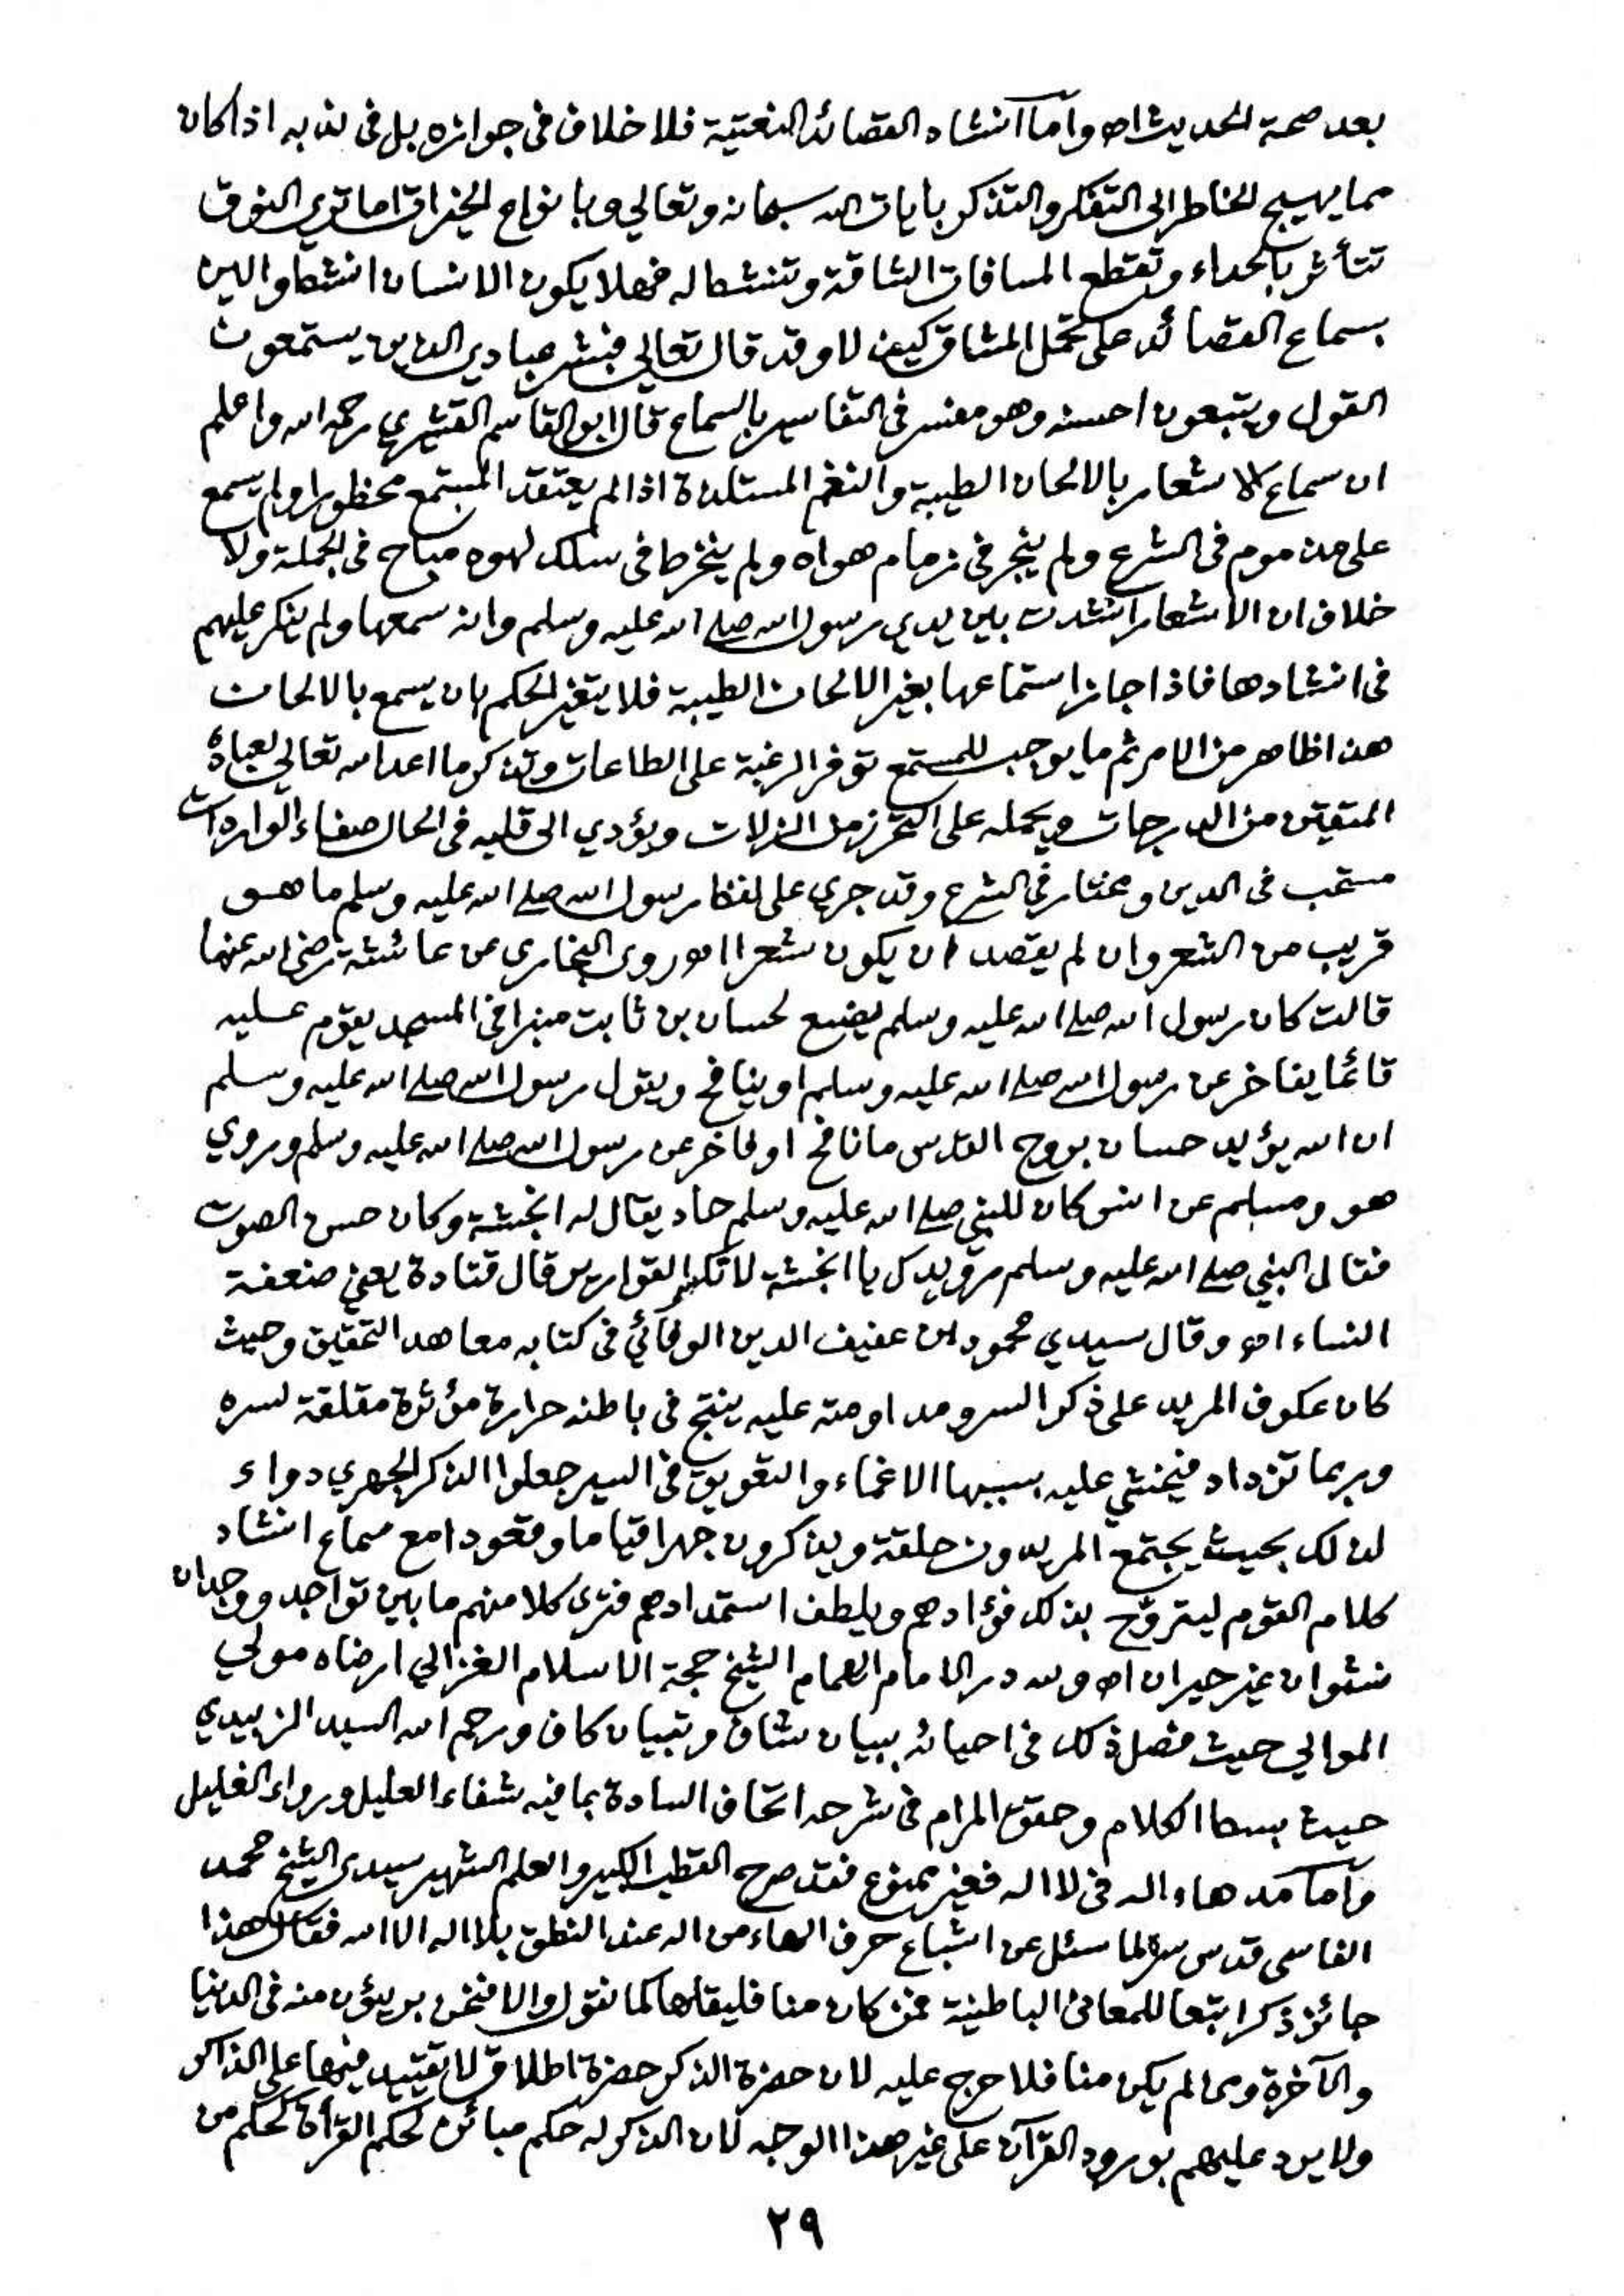 بعد صحة الحديث اه وأما آنشاد القصائد النعتية فلا خلاف في جوازه بل في ندبه اذا كان
مما يهيج الخاطر الى التفكر والتذكر بايات الله سبحانه وتعالي وبانواع الخيرات اما تري النوق
تتأثر بالحداء وتقطع المسافات الشاقة وتنشط له فهلا يكون الانسان انشط والين
بسماع القصائد على تحمل المشاق كيف لا وقد قال تعالي فبشر عبادي الذين يستمعون
القول ويتبعون احسنه وهو مفسر في التفاسير بالسماع قال ابو القاسم القشيري رحمه الله واعلم
ان سماع الاشعار بالالحان الطيبة والنغم المستلذة اذا لم يعتقد المستمع محظورا ولم يسمع
على مذموم في الشرع ولم ينجر في زمام هواه ولم ينخرط في سلك لهوه مباح في الجملة ولا
خلاف ان الاشعار انشدت بين يدي رسول الله صلى الله عليه وسلم وانه سمعها ولم ينكر عليهم
في انشادها فاذا جاز استماعها بغير الالحان الطيبة فلا يتغير الحكم بان يسمع بالالحان
هذا ظاهر من الامر ثم ما يوجب للمستمع توفر الرغبة على الطاعات وتذكر ما اعد الله تعالي لعباده
المتقين من الدرجات ويحمله على التحرز من الزلات ويؤدي الى قلبه في الحال صفاء الواردات
مستحب في الدين ومختار في الشرع وقد جري على لفظ رسول الله صلى الله عليه وسلم ما هو
قريب من الشعر وان لم يقصد ان يكون شعرا اه وروى البخاري عن عائشة رضي الله عنها
قالت كان رسول الله صلى الله عليه وسلم يضع لحسان بن ثابت منبرا في المسجد يقوم عليه
قائما يفاخر عن رسول الله صلى الله عليه وسلم او ينافح ويقول رسول الله صلى الله عليه وسلم
ان الله يؤيد حسان بروح القدس ما نافح او فاخر عن رسول الله صلى الله عليه وسلم وروي
هو ومسلم عن انس كان للنبي صلى الله عليه وسلم حاد يقال له انجشة وكان حسن الصوت
فقال النبي صلى الله عليه وسلم رويدك يا انجشة لا تكسر القوارير قال قتادة يعني ضعفة
النساء اه وقال سيدي محمود بن عفيف الدين الوفائي في كتابه معاهد التحقيق وحيث
كان عكوف المريد على ذكر السر ومداومته عليه ينتج في باطنه حرارة مؤثرة مقلقة لسره
وربما تزداد فيخشي عليه بسببها الاغماء والتعويق في السير جعلوا الذكر الجهري دواء
لذلك بحيث يجتمع المريدون حلقة ويذكرون جهرا قياما وقعودا مع سماع انشاد
كلام القوم ليتروّح بذلك فؤادهم ويلطف استمدادهم فترى كلا منهم ما بين تواجد ووجدان
نشوان غير حيران اه ولله در الامام الهمام الشيخ حجة الاسلام الغزالي ارضاه مولي
الموالي حيث فصل ذلك في احيائه ببيان شاف وتبيان كاف ورحم الله السيد الزبيدي
حيث بسط الكلام وحقق المرام في شرحه اتحاف السادة بما فيه شفاء العليل ورواء الغليل
وأما مد هاء اله في لا اله فغير ممنوع فقد صرح القطب الكبير والعلم الشهير سيدي الشيخ محمد
الفاسي قدس سره لما سئل عن اشباع حرف الهاء من اله عند النطق بلا اله الا الله فقال هذا
جائز ذكرا تبعا للمعاني الباطنية فمن كان منا فليقلها كما نقول والا فنحن بريؤن منه في الدنيا
والآخرة ومن لم يكن منا فلا حرج عليه لان حضرة الذكر حضرة اطلاق لا تقييد فيها على الذاكر
ولا يرد عليهم بورود القرآن على غير هذا الوجه لان الذكر له حكم مبائن لحكم القرأة لحكم من
٢٩